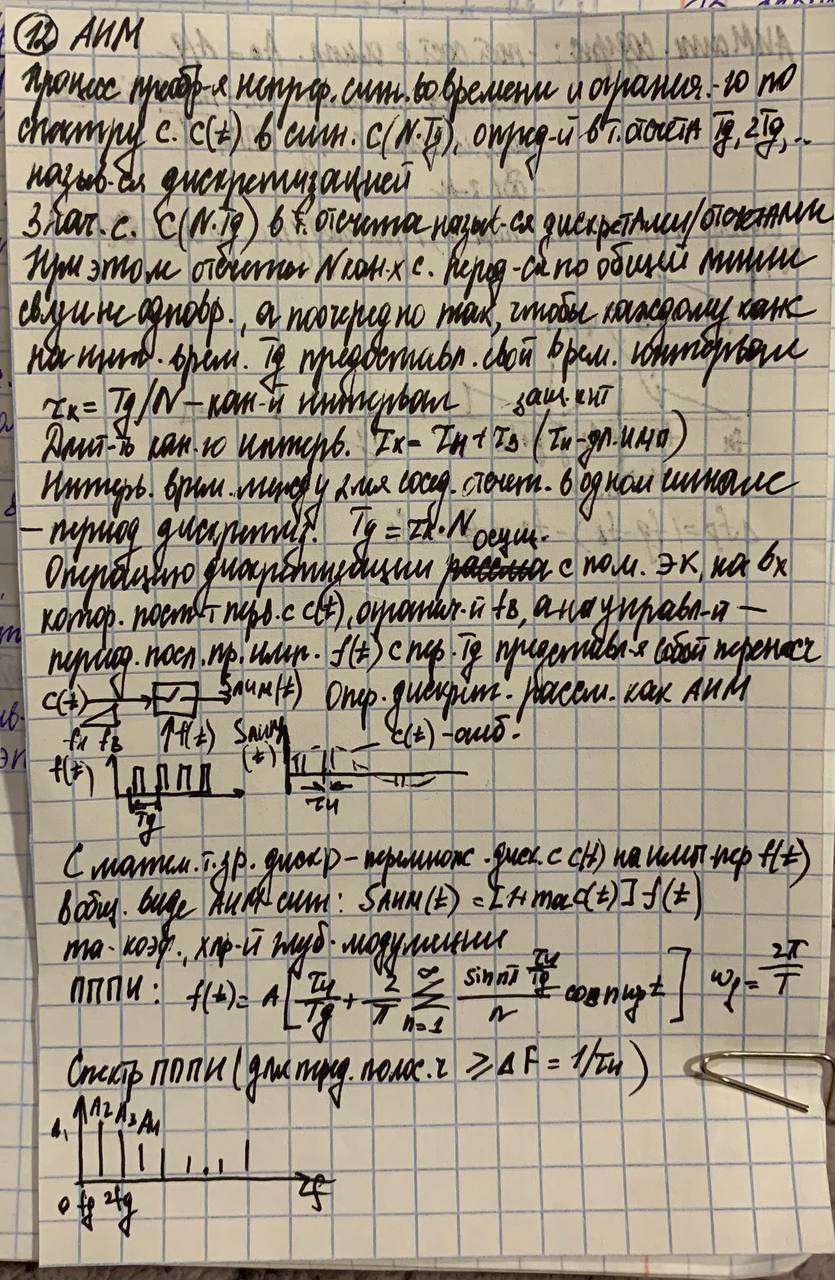 12 АИМ
Процесс преобр-я непрер. сигн. во времени и огранич.-го по
спектру с. C(t) в сигн. C(N·Tg), опред-й в т. отсчета Tg, 2Tg, ..
назыв-ся дискретизацией
Знач. с. C(N·Tg) в т. отсчета назыв-ся дискретами/отсчетами
При этом отсчеты N кан-х с. перед-ся по общей линии
связи не однovр., а поочередно так, чтобы каждому кан.
на инт. врем. Tg предоставл. свой врем. интервал
τк = Tg/N – кан-й интервал защ. инт
Длит-ть кан-го интерв. τк = τи + τз (τи - дл. имп)
Интерв. врем. между 2мя сосед. отсчет. в одном сигнале
– период дискретиз. Tg = τк·N
осущ.
Операцию дискретизации с пом. ЭК, на вх
котор. пост-т перв. с c(t), огранич-й fв, а на управл-й –
период. посл. пр. имп. f(t) с пер. Tg представл-я собой переносч
C(t) Sаим(t) Опер. дискрет. рассм. как АИМ
fн fв f(t) Sаим(t) c(t) - огиб.
f(t)
Tg τи
С матем. т. зр. дискр – перемнож. диск. с c(t) на имп. пер f(t)
В общ. виде АИМ-сигн: Sаим(t) = [1+ma c(t)] f(t)
ma - коэф., хар-й глуб. модуляции
ПППИ: f(t) = A[τи/Tg + 2/π ∑ n=1 ∞ sin nπ τи/Tg / n cos nωgt] ωg = 2π/T
Спектр ПППИ (для перед. полос. ч ≥ ΔF = 1/τи)
A1 A2 A3 A4
0 fg 2fg f